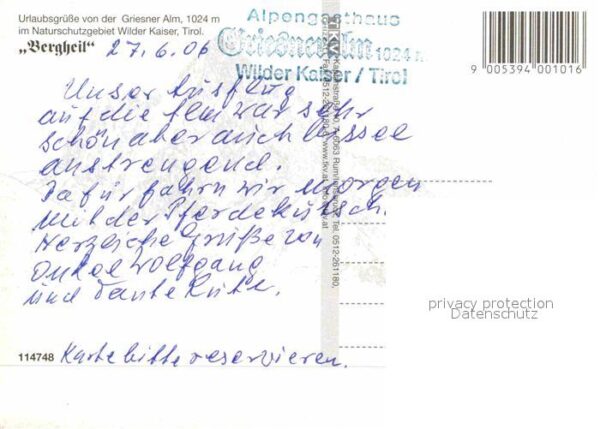 Urlaubsgrüße von der Griesner Alm, 1024 m
im Naturschutzgebiet Wilder Kaiser, Tirol.
„Bergheil“ 27.6.06
Alpengasthaus
Griesneralm 1024 m
Wilder Kaiser / Tirol
9 005394 001016
Unser Ausflug
auf die Alm war sehr
schön aber auch bissel
anstrengend.
Dafür fahrn wir morgen
mit der Pferdekutsch.
Herzliche Grüße von
Onkel Wolfgang
und Tante Rute.
114748 Karte bitte reservieren.
privacy protection
Datenschutz